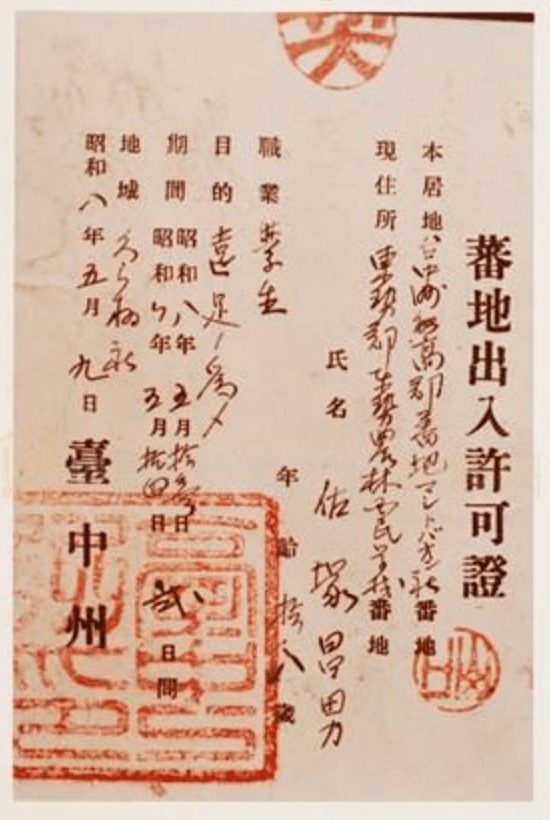 蕃地出入許可證
本居地 台中州能高郡蕃地マレトバオン社番地
現住所 東勢郡東勢農林國民学校番地
氏名 佐塚昌男
年齡 拾八歲
職業 学生
目的 遠足ノ為メ
期間 昭和八年五月拾参日
昭和八年五月拾四日 弍日間
地域 久良栖社
昭和八年五月九日
臺中州